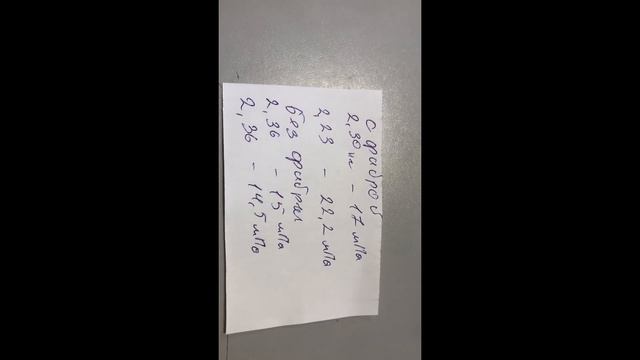 с фиброй
2,30 кг - 17 мПа
2,23 - 22,2 мПа
без фибры
2,36 - 15 мПа
2,36 - 14,5 мПа